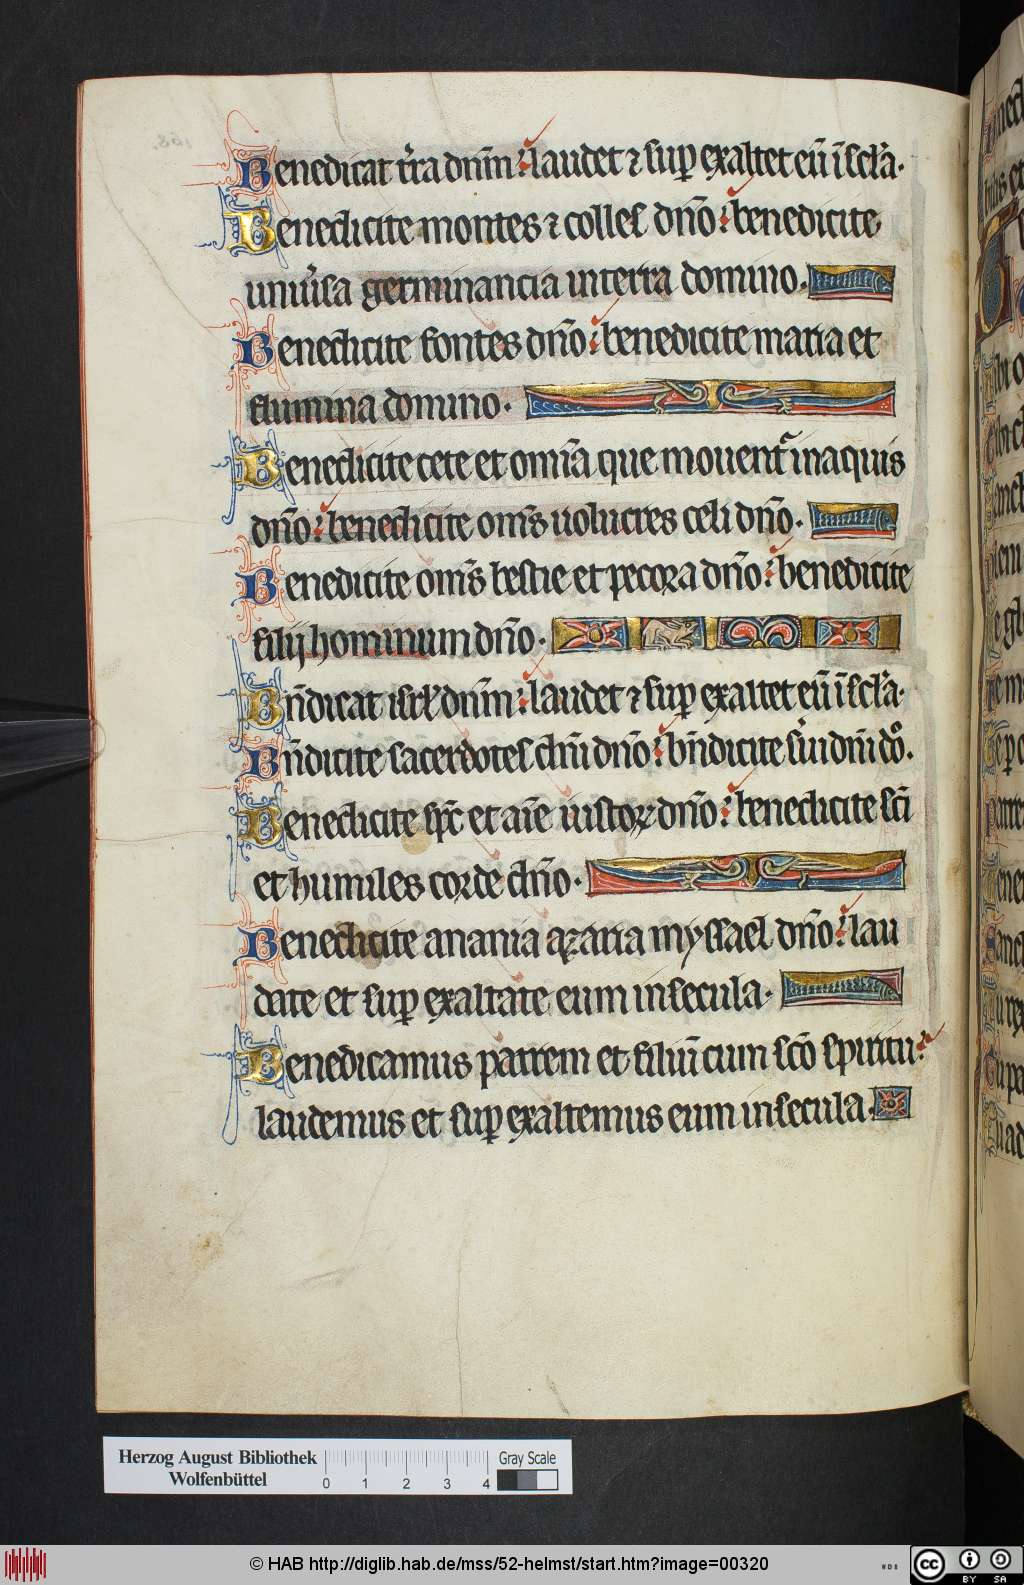 Benedicat t͛ra dn̄m : laudet ⁊ suꝑ exaltet eū ī scl͛a.
Benedicite montes ⁊ colles dn̄o : benedicite
uniu͛sa germinancia in terra domino.
Benedicite fontes dn̄o : benedicite maria et
flumina domino.
Benedicite cete et omīa que mouent᷑ in aquis
dn̄o : benedicite om̄s uolucres celi dn̄o.
Benedicite om̄s bestie et pecora dn̄o : benedicite
filij hominum dn̄o.
Bn̄dicat isrl̄ dn̄m : laudet ⁊ suꝑ exaltet eū ī scl͛a.
Bn̄dicite sacerdotes dn̄i dn̄o : bn̄dicite s͛ui dn̄i do͛.
Benedicite spc̄ et aīe iustoꝝ dn̄o : benedicite sc̄i
et humiles corde dn̄o.
Benedicite anania azaria myssael dn̄o : lau
date et suꝑ exaltate eum in secula.
Benedicamus patrem et filiū cum sc̄o spiritu :
laudemus et suꝑ exaltemus eum in secula.
Herzog August Bibliothek
Wolfenbüttel
0 1 2 3 4
Gray Scale
© HAB http://diglib.hab.de/mss/52-helmst/start.htm?image=00320
cc BY SA